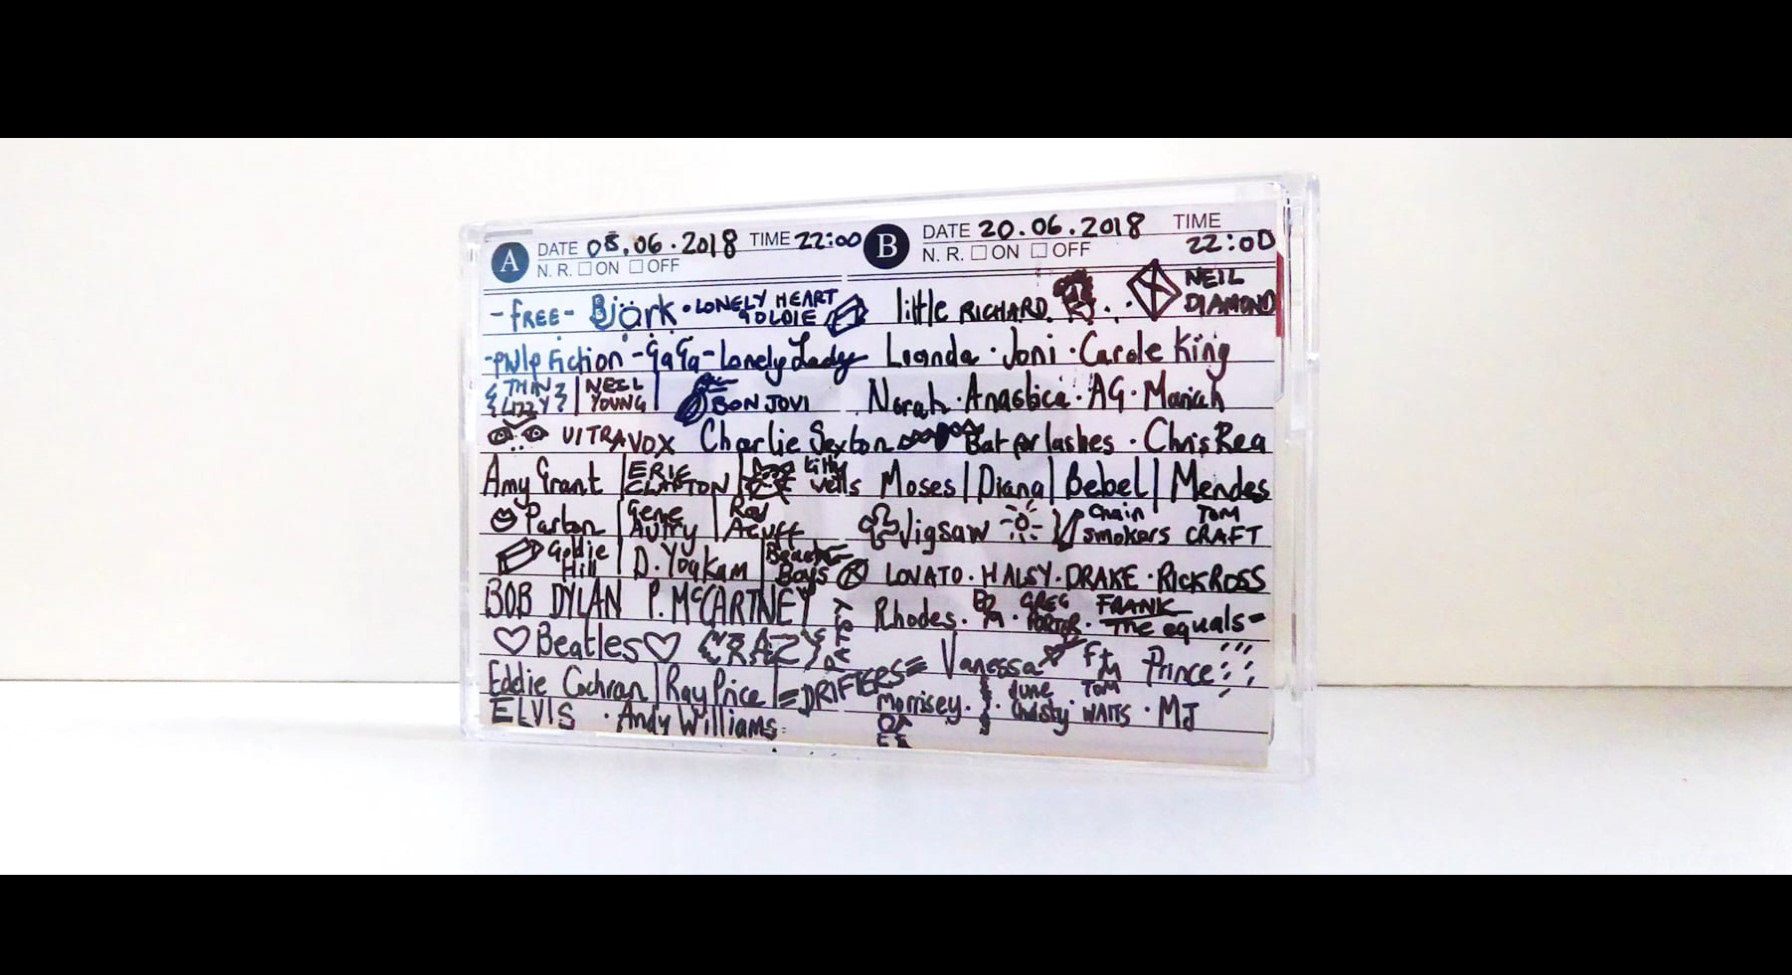 A DATE 08.06.2018 TIME 22:00
N. R. ON OFF
-FREE- Björk · LONELY HEART
GOLDIE
-pulp Fiction - GaGa - Lonely Lady
THIN LIZZY | NEIL YOUNG | BON JOVI
UlTRAVOX Charlie Sexton
Amy Grant | ERIC CLAPTON | Kitty Wells
Parton | Gene Autry | Roy Acuff
Goldie Hill | D. Yoakam | Beach Boys
BOB DYLAN P. McCARTNEY
Beatles CRAZY
Eddie Cochran | Ray Price | =DRIFTERS=
ELVIS · Andy Williams
B DATE 20.06.2018 TIME 22:00
N. R. ON OFF
little RICHARD NEIL DIAMOND
Joni · Carole King
Norah · Anastica · AG · Mariah
Bat for lashes · Chris Rea
Moses | Diana | Bebel | Mendes
Jigsaw Chain smokers TOM CRAFT
LOVATO · HALSY · DRAKE · RICK ROSS
Rhodes · GREG PORTER · FRANK The equals
Vanessa Prince
Morrisey · June Christy TOM WAITS · MJ